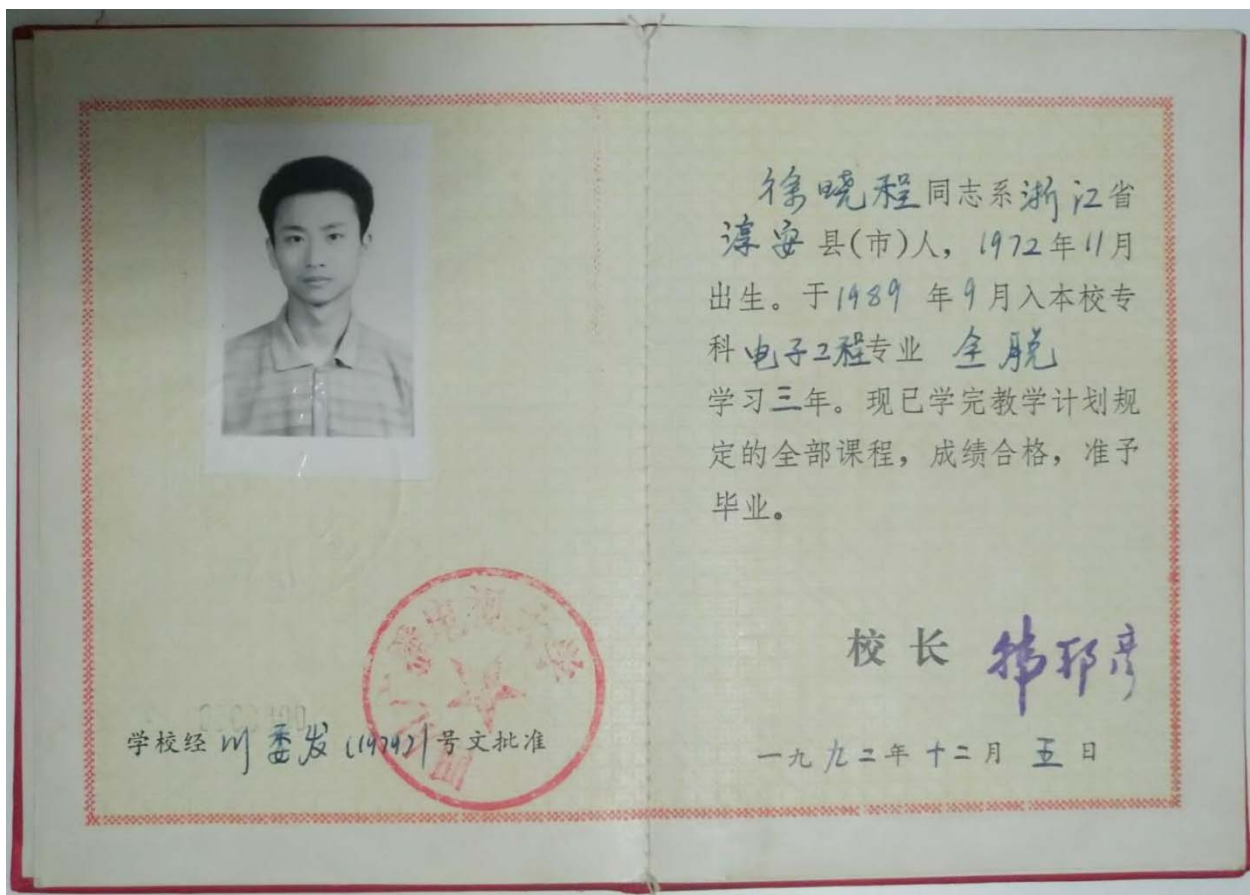 学校经川委发(1979)1号文批准
四川广播电视大学
徐晓程同志系浙江省
淳安县(市)人，1972年11月
出生。于1989年9月入本校专
科电子工程专业 全脱
学习三年。现已学完教学计划规
定的全部课程，成绩合格，准予
毕业。
校长 韩邦彦
一九九二年十二月五日